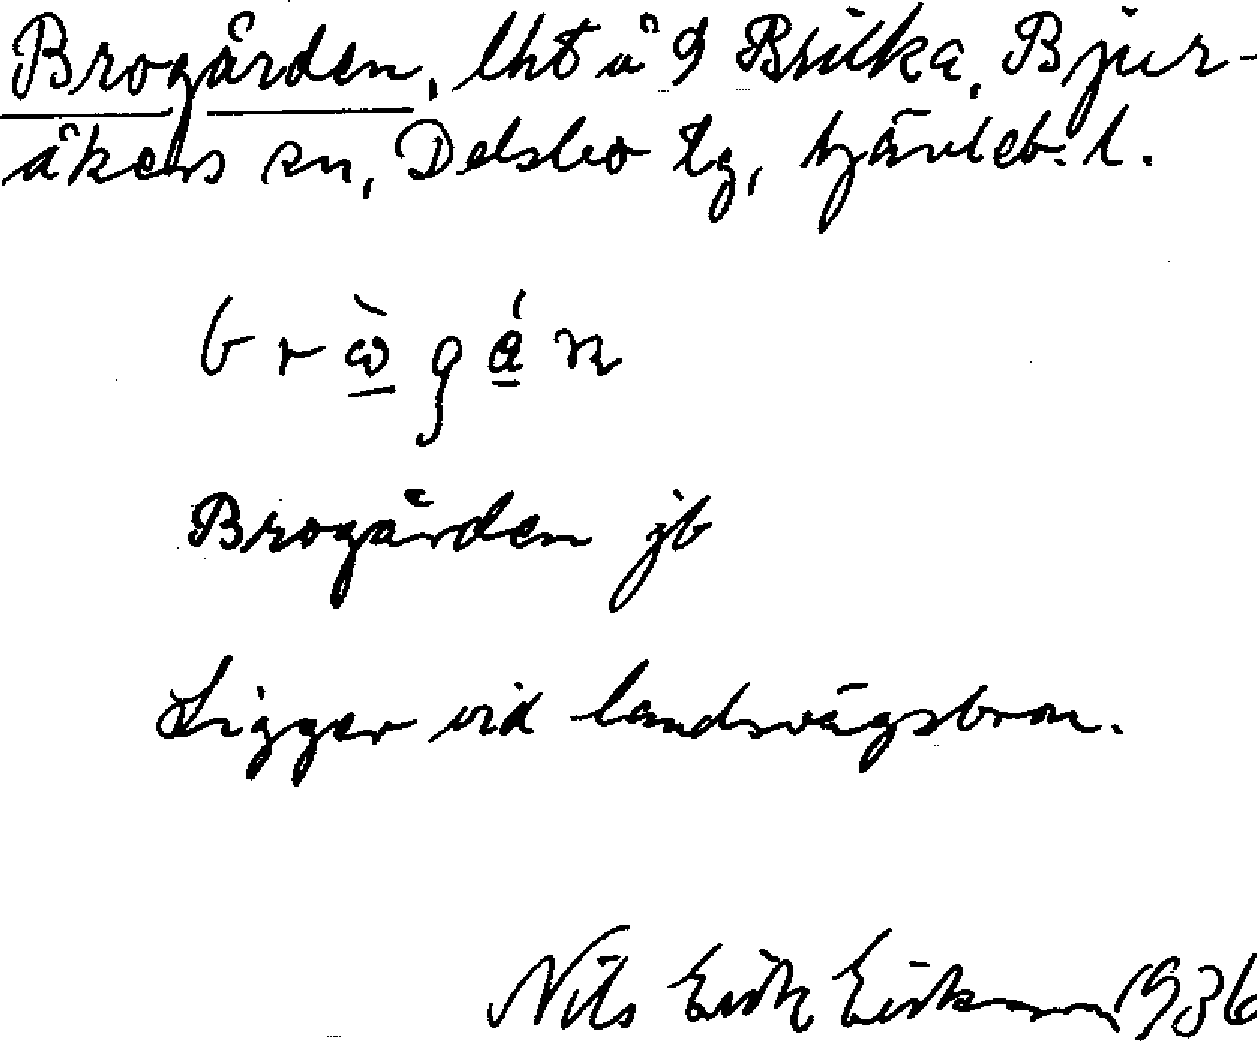 Brogården, lht å 9 Brilka, Bjur-
åkers sn, Delsbo tg, Gävleb. l.
brὼ̱gá̱n
Brogården jb
Ligger vid landsvägsbron.
Nils Erik Eriksson 1936